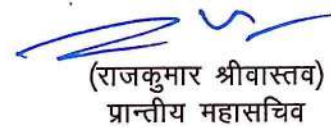 (राजकुमार श्रीवास्तव)
प्रान्तीय महासचिव